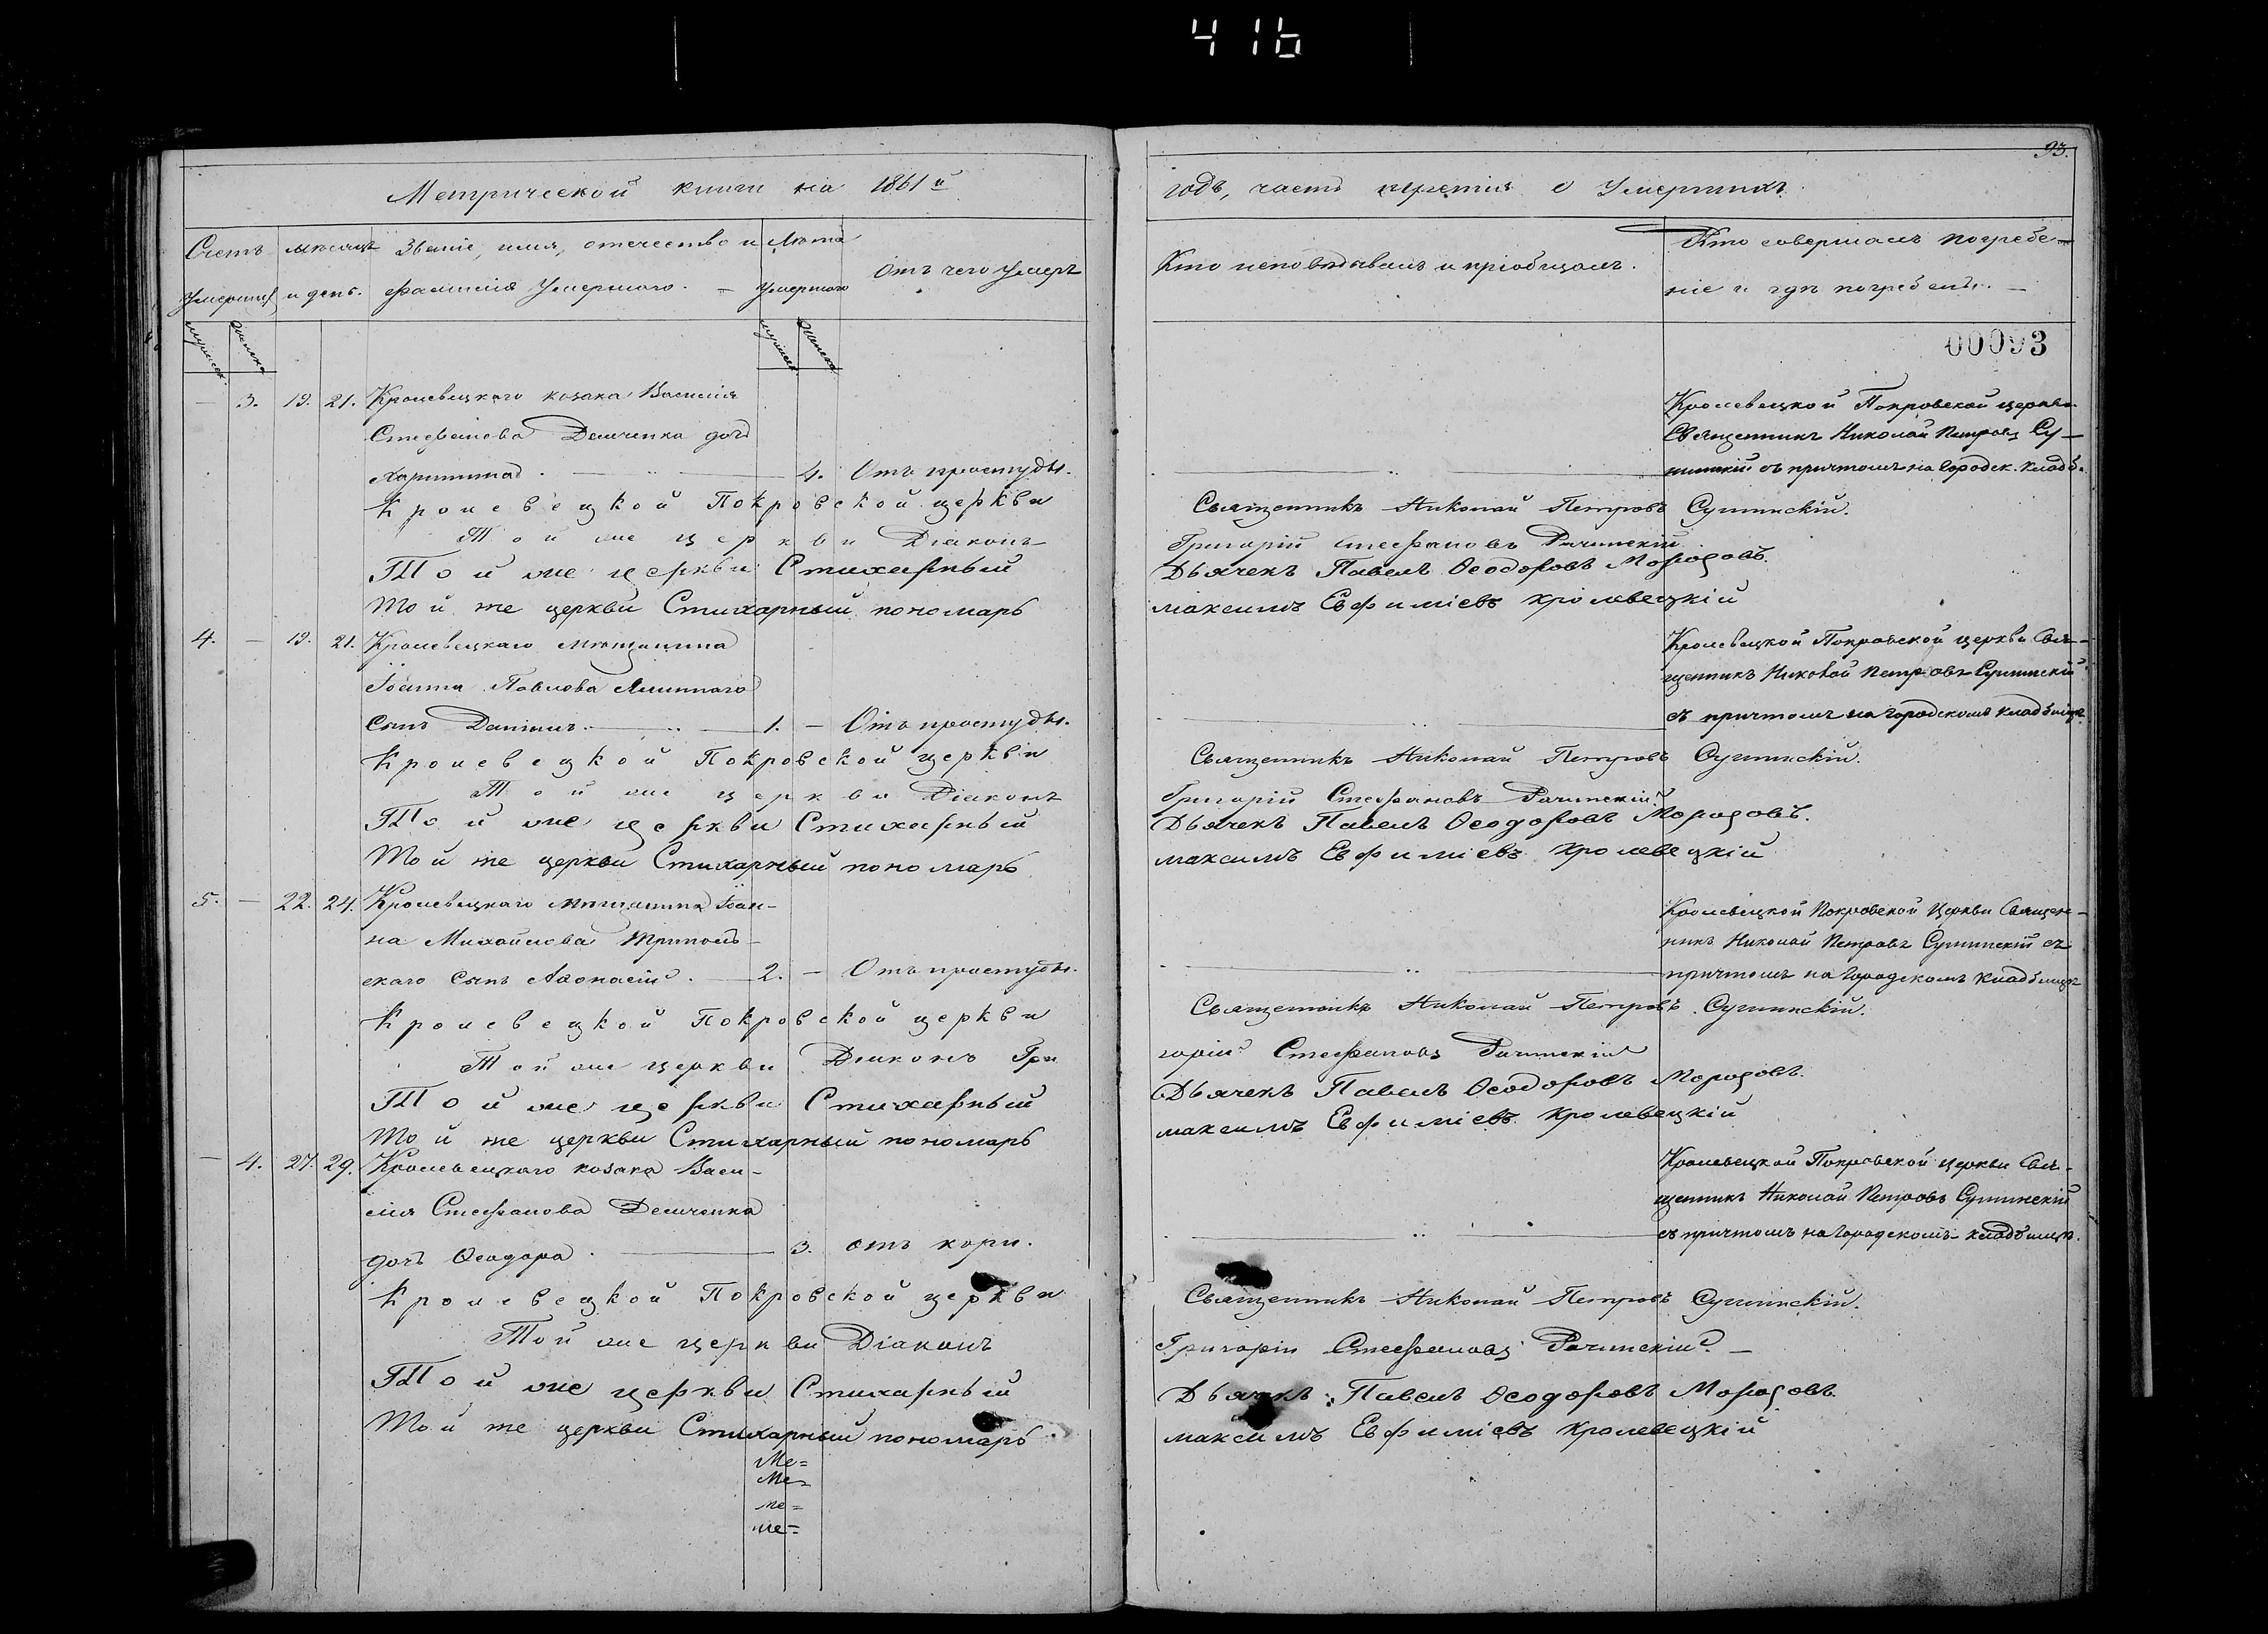 416
93.
Метрической книги на 1861й
годъ, часть третія о умершихъ.
Счетъ умершихъ
мѣсяцъ и день.
Званіе, имя, отечество и фамилія умершаго. —
Лѣта умершаго
Отъ чего умеръ
Кто исповѣдывалъ и пріобщалъ.
Кто совершалъ погребе-
ніе и гдѣ погребены. —
мужеск.
женска
мужеска
женска
00093
— 3. 19. 21. Кролевецкаго козака Василія
Стефанова Демченка дочь
Харитина. — 4. Отъ простуды.
Кролевецкой Покровской церкви
Священникъ Николай Петровъ
съ причтомъ на городск. кладб.
Кролевецкой Покровской церкви Священникъ Николай Петровъ
Той же церкви Діаконъ Григорій Стефановъ
Той же церкви Стихарный Дьячекъ Павелъ Ѳеодоровъ
Той же церкви Стихарный пономарь Максимъ Евфиміевъ Кролевецкій
4. — 19. 21. Кролевецкаго мѣщанина
Іоанна Павлова
сынъ Даніилъ. — 1. — Отъ простуды.
Кролевецкой Покровской церкви Свя-
щенникъ Николай Петровъ
съ причтомъ на городскомъ кладбищѣ
Кролевецкой Покровской церкви Священникъ Николай Петровъ
Той же церкви Діаконъ Григорій Стефановъ
Той же церкви Стихарный Дьячекъ Павелъ Ѳеодоровъ
Той же церкви Стихарный пономарь Максимъ Евфиміевъ Кролевецкій
5. — 22. 24. Кролевецкаго мѣщанина Іоан-
на Михайлова Триполь-
скаго сынъ Аѳанасій. — 2. — Отъ простуды.
Кролевецкой Покровской церкви Священ-
никъ Николай Петровъ съ
причтомъ на городскомъ кладбищѣ
Кролевецкой Покровской церкви Священникъ Николай Петровъ
Той же церкви Діаконъ Гри горій Стефановъ
Той же церкви Стихарный Дьячекъ Павелъ Ѳеодоровъ
Той же церкви Стихарный пономарь Максимъ Евфиміевъ Кролевецкій
— 4. 27. 29. Кролевецкаго козака Васи-
лія Стефанова Демченка
дочь Ѳеодора. — 3. отъ кори.
Кролевецкой Покровской церкви Свя-
щенникъ Николай Петровъ
съ причтомъ на городскомъ кладбищѣ.
Кролевецкой Покровской церкви Священникъ Николай Петровъ
Той же церкви Діаконъ Григорій Стефановъ
Той же церкви Стихарный Дьячекъ Павелъ Ѳеодоровъ
Той же церкви Стихарный пономарь Максимъ Евфиміевъ Кролевецкій
Ме=
Ме=
ме=
ме=